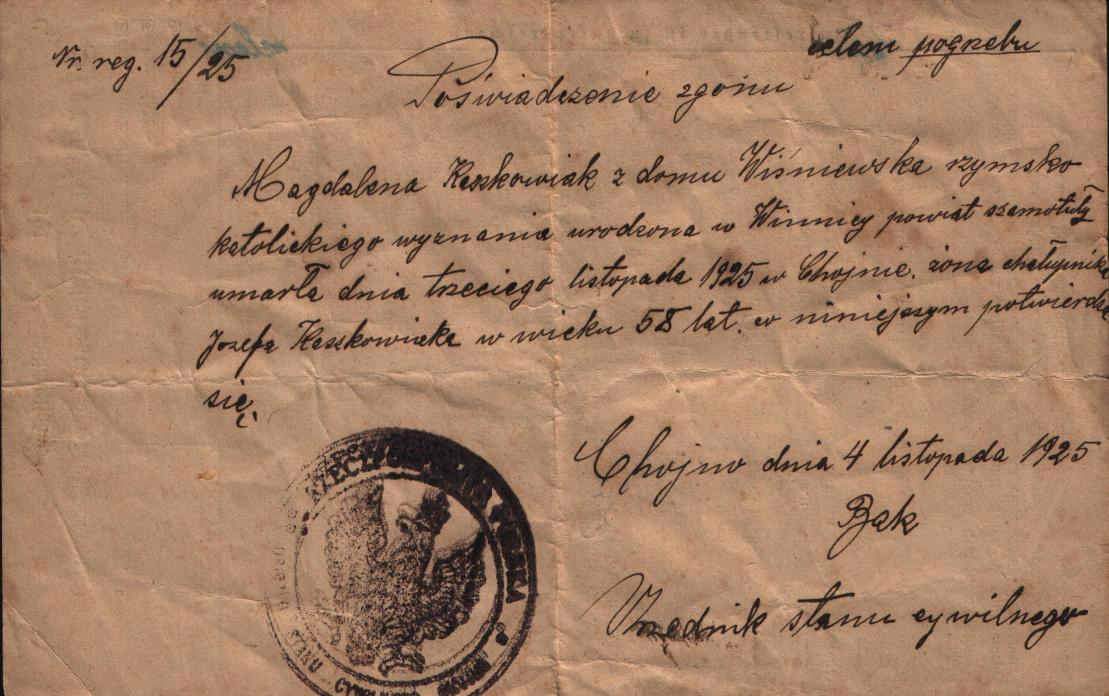 Nr. reg. 15/25
celem pogrzebu
Poświadczenie zgonu
Magdalena Kaszkowiak z domu Wiśniewska rzymsko
katolickiego wyznania urodzona w Winnicy powiat szamotuły
umarła dnia trzeciego listopada 1925 w Chojnie, żona chałupnika
Józefa Kaszkowiaka w wieku 58 lat, co niniejszym potwierdza
się.
Chojno dnia 4 listopada 1925
Bąk
Urzędnik stanu cywilnego
RZECZPOSPOLITA POLSKA